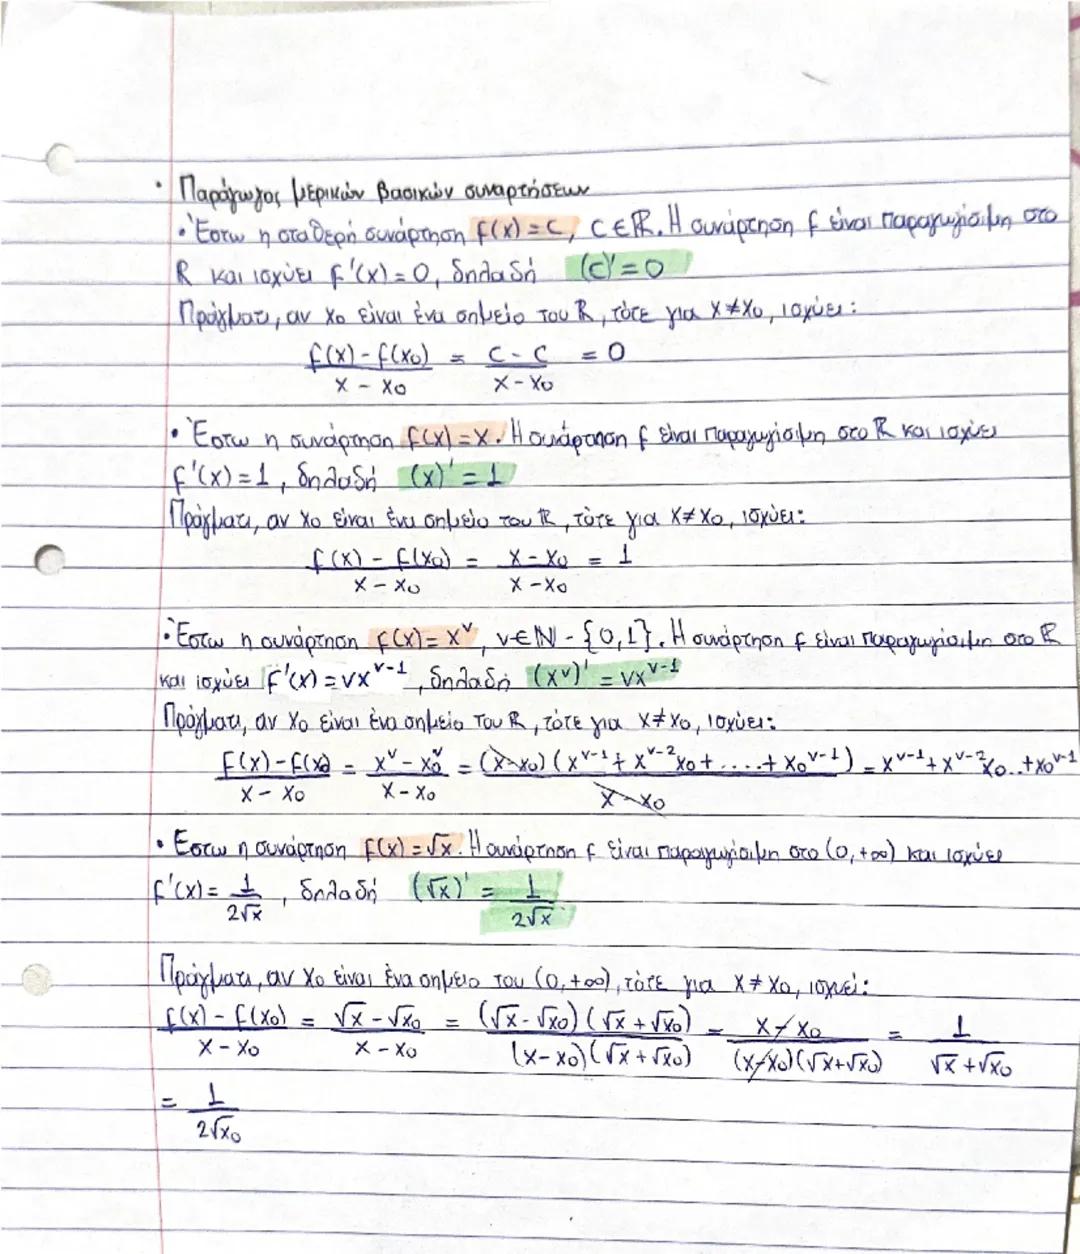 • Παράγωγος μερικών βασικών συναρτήσεων
• Έστω η σταθερή συνάρτηση f(x) = c, c ∈ ℝ. Η συνάρτηση f είναι παραγωγίσιμη στο
ℝ και ισχύει f'(x) = 0, δηλαδή (c)' = 0
Πράγματι, αν x₀ είναι ένα σημείο του ℝ, τότε για x ≠ x₀, ισχύει:
(f(x) - f(x₀))/(x - x₀) = (c - c)/(x - x₀) = 0
• Έστω η συνάρτηση f(x) = x. Η συνάρτηση f είναι παραγωγίσιμη στο ℝ και ισχύει
f'(x) = 1, δηλαδή (x)' = 1
Πράγματι, αν x₀ είναι ένα σημείο του ℝ, τότε για x ≠ x₀, ισχύει:
(f(x) - f(x₀))/(x - x₀) = (x - x₀)/(x - x₀) = 1
• Έστω η συνάρτηση f(x) = x^ν, ν ∈ ℕ - {0,1}. Η συνάρτηση f είναι παραγωγίσιμη στο ℝ
και ισχύει f'(x) = νx^(ν-1), δηλαδή (x^ν)' = νx^(ν-1)
Πράγματι, αν x₀ είναι ένα σημείο του ℝ, τότε για x ≠ x₀, ισχύει:
(f(x) - f(x₀))/(x - x₀) = (x^ν - x₀^ν)/(x - x₀) = ((x - x₀)(x^(ν-1) + x^(ν-2)x₀ + .... + x₀^(ν-1)))/(x - x₀) = x^(ν-1) + x^(ν-2)x₀.. + x₀^(ν-1)
• Έστω η συνάρτηση f(x) = √x. Η συνάρτηση f είναι παραγωγίσιμη στο (0, +∞) και ισχύει
f'(x) = 1/(2√x), δηλαδή (√x)' = 1/(2√x)
Πράγματι, αν x₀ είναι ένα σημείο του (0, +∞), τότε για x ≠ x₀, ισχύει:
(f(x) - f(x₀))/(x - x₀) = (√x - √x₀)/(x - x₀) = ((√x - √x₀)(√x + √x₀))/((x - x₀)(√x + √x₀)) = (x - x₀)/((x - x₀)(√x + √x₀)) = 1/(√x + √x₀)
= 1/(2√x₀)